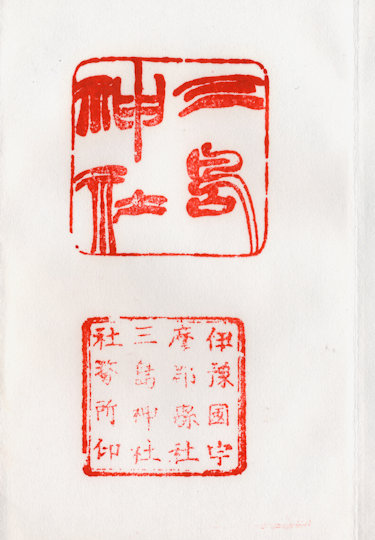 三島
神社
伊豫國宇
摩郡縣社
三島神社
社務所印